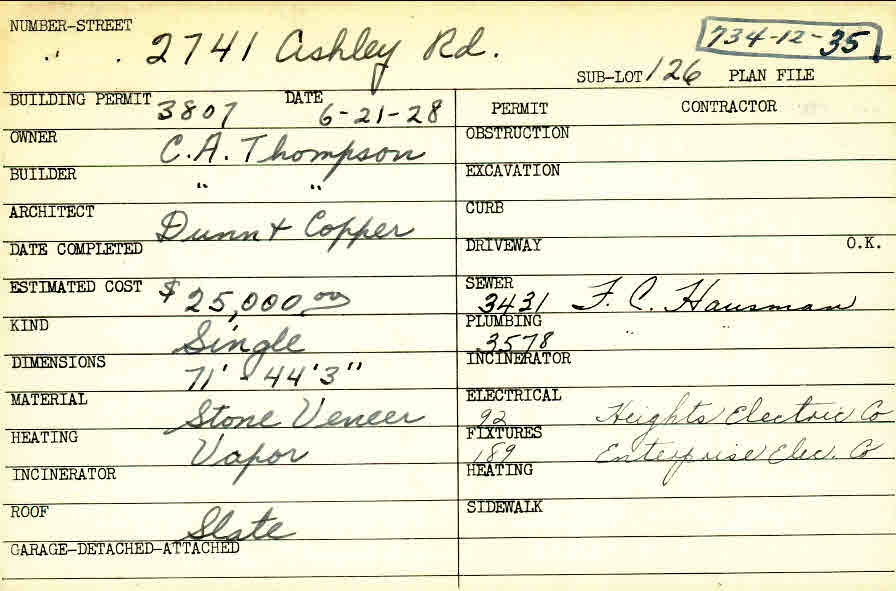 NUMBER-STREET
2741 Ashley Rd.
734-12-35
SUB-LOT 126 PLAN FILE
BUILDING PERMIT 3807 DATE 6-21-28
PERMIT CONTRACTOR
OWNER C.A. Thompson
OBSTRUCTION
BUILDER " "
EXCAVATION
ARCHITECT Dunn + Copper
CURB
DATE COMPLETED
DRIVEWAY O.K.
ESTIMATED COST $25,000 00
SEWER 3431 F. C. Hausman
KIND Single
PLUMBING 3578 " "
DIMENSIONS 71' - 44'3"
INCINERATOR
MATERIAL Stone Veneer
ELECTRICAL 92 Heights Electric Co
HEATING Vapor
FIXTURES 189 Enterprise Elec. Co
INCINERATOR
HEATING
ROOF Slate
SIDEWALK
GARAGE-DETACHED-ATTACHED